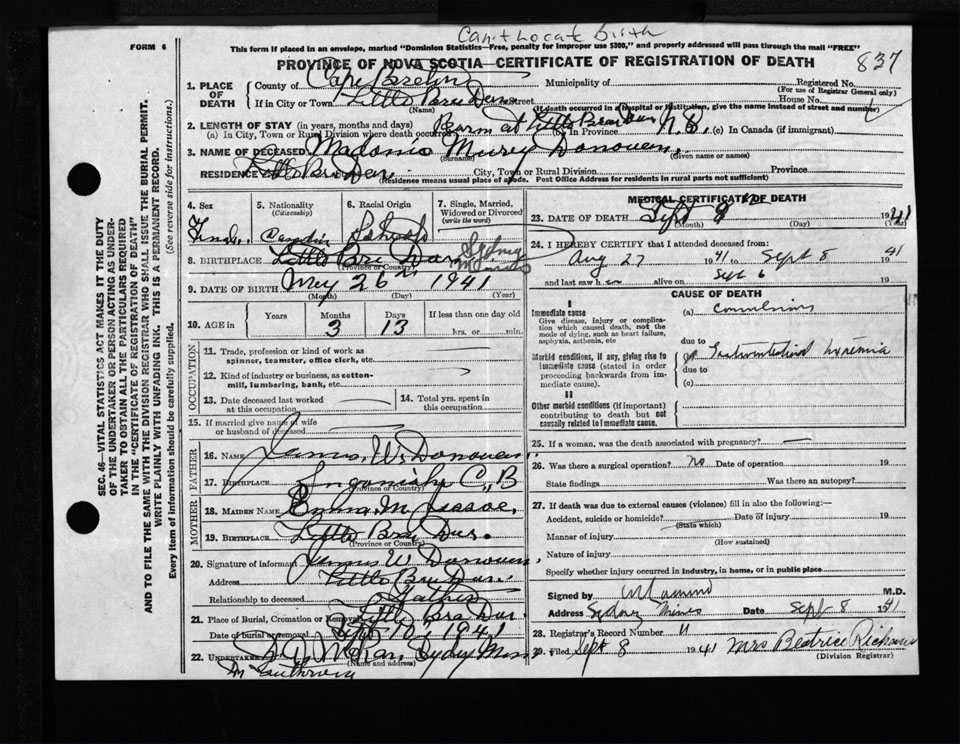 Can't Locate Birth
FORM 6
This form if placed in an envelope, marked "Dominion Statistics—Free, penalty for improper use $300," and properly addressed will pass through the mail "FREE"
837
PROVINCE OF NOVA SCOTIA—CERTIFICATE OF REGISTRATION OF DEATH
1. PLACE OF DEATH
County of Cape Breton
Municipality of
Registered No.
(For use of Registrar General only)
If in City or Town Little Bras Dor Street
House No.
(Name)
(If death occurred in a hospital or institution, give the name instead of street and number)
2. LENGTH OF STAY (in years, months and days)
(a) In City, Town or Rural Division where death occurred Born at Little Bras Dor (b) in Province N.S. (c) In Canada (if immigrant)
3. NAME OF DECEASED Mary Donoven
(Surname) (Given name or names)
RESIDENCE Little Bras Dor City, Town or Rural Division Province
(Residence means usual place of abode. Post Office Address for residents in rural parts not sufficient)
4. Sex
5. Nationality (Citizenship)
6. Racial Origin
7. Single, Married, Widowed or Divorced (write the word)
8. BIRTHPLACE Little Bras Dor Sydney Mines
(Province or Country)
9. DATE OF BIRTH May 26th 1941
(Month) (Day) (Year)
10. AGE in
Years Months Days If less than one day old
3 13 hrs. or min.
OCCUPATION
11. Trade, profession or kind of work as spinner, teamster, office clerk, etc.
12. Kind of industry or business, as cotton-mill, lumbering, bank, etc.
13. Date deceased last worked at this occupation
14. Total yrs. spent in this occupation
15. If married give name of wife or husband of deceased
FATHER
16. NAME James W. Donoven
17. BIRTHPLACE Ingonish C.B
(Province or Country)
MOTHER
18. MAIDEN NAME Emma M.
19. BIRTHPLACE Little Bras Dor
(Province or Country)
20. Signature of informant James W. Donoven
Address Little Bras Dor
Relationship to deceased Father
21. Place of Burial, Cremation or Removal Little Bras Dor
Date of burial or removal Sept 10 1941
22. Undertaker Sydney Mines
(Name and address)
MEDICAL CERTIFICATE OF DEATH
23. DATE OF DEATH Sept 8th 1941
(Month) (Day) (Year)
24. I HEREBY CERTIFY that I attended deceased from:
Aug 27 1941 to Sept 8 1941
and last saw h alive on Sept 6
CAUSE OF DEATH
I
Immediate cause
Give disease, injury or complication which caused death, not the mode of dying, such as heart failure, asphyxia, asthenia, etc
(a) Convulsions
due to
Morbid conditions, if any, giving rise to immediate cause (stated in order proceeding backwards from immediate cause).
(b)
due to
(c)
II
Other morbid conditions (if important) contributing to death but not causally related to immediate cause.
25. If a woman, was the death associated with pregnancy? —
26. Was there a surgical operation? no Date of operation 19
State findings Was there an autopsy?
27. If death was due to external causes (violence) fill in also the following:—
Accident, suicide or homicide? Date of injury 19
(State which)
Manner of injury
(How sustained)
Nature of injury
Specify whether injury occurred in industry, in home, or in public place
Signed by M.D.
Address Sydney Mines Date Sept 8 1941
28. Registrar's Record Number 11
29. Filed Sept 8 1941 Mrs Beatrice
(Division Registrar)
SEC. 46—VITAL STATISTICS ACT MAKES IT THE DUTY
OF THE UNDERTAKER OR PERSON ACTING AS UNDERTAKER TO OBTAIN ALL THE PARTICULARS REQUIRED
IN THE "CERTIFICATE OF REGISTRATION OF DEATH"
AND TO FILE THE SAME WITH THE DIVISION REGISTRAR WHO SHALL ISSUE THE BURIAL PERMIT.
WRITE PLAINLY WITH UNFADING INK. THIS IS A PERMANENT RECORD.
Every item of information should be carefully supplied. (See reverse side for instructions.)